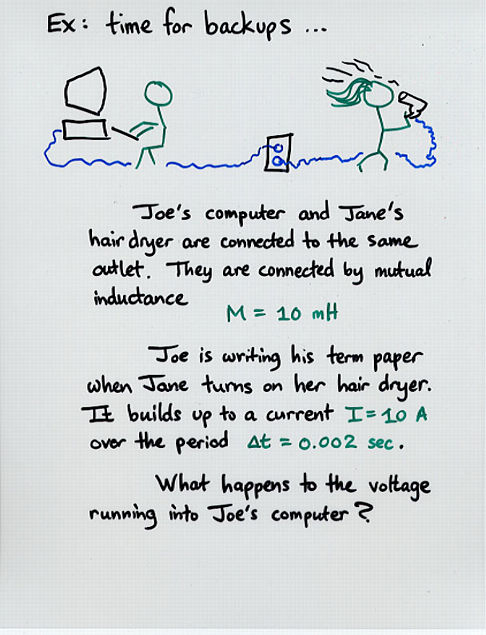 Ex: time for backups ...
Joe's computer and Jane's
hair dryer are connected to the same
outlet. They are connected by mutual
inductance
M = 10 mH
Joe is writing his term paper
when Jane turns on her hair dryer.
It builds up to a current I = 10 A
over the period Δt = 0.002 sec.
What happens to the voltage
running into Joe's computer?